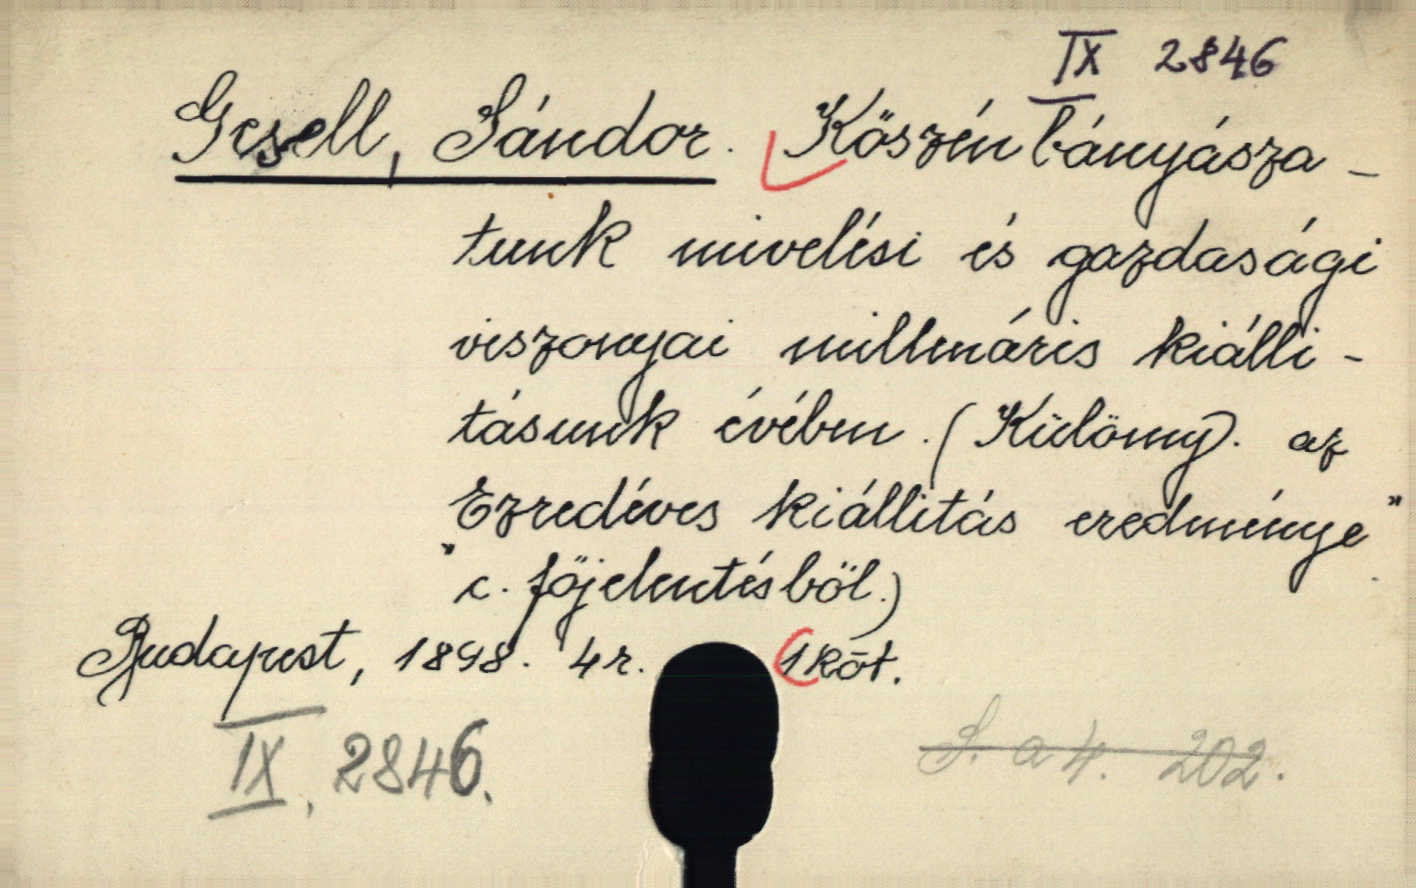 IX 2846
Gesell, Sándor. Kőszénbányásza-
tunk mivelési és gazdasági
viszonyai millenáris kiálli-
tásunk évében. (Különny. az
Ezredéves kiállitás eredménye"
" c. főjelentésből.)
Budapest, 1898. 4r. 1 köt.
IX, 2846.
S. a 4. 202.